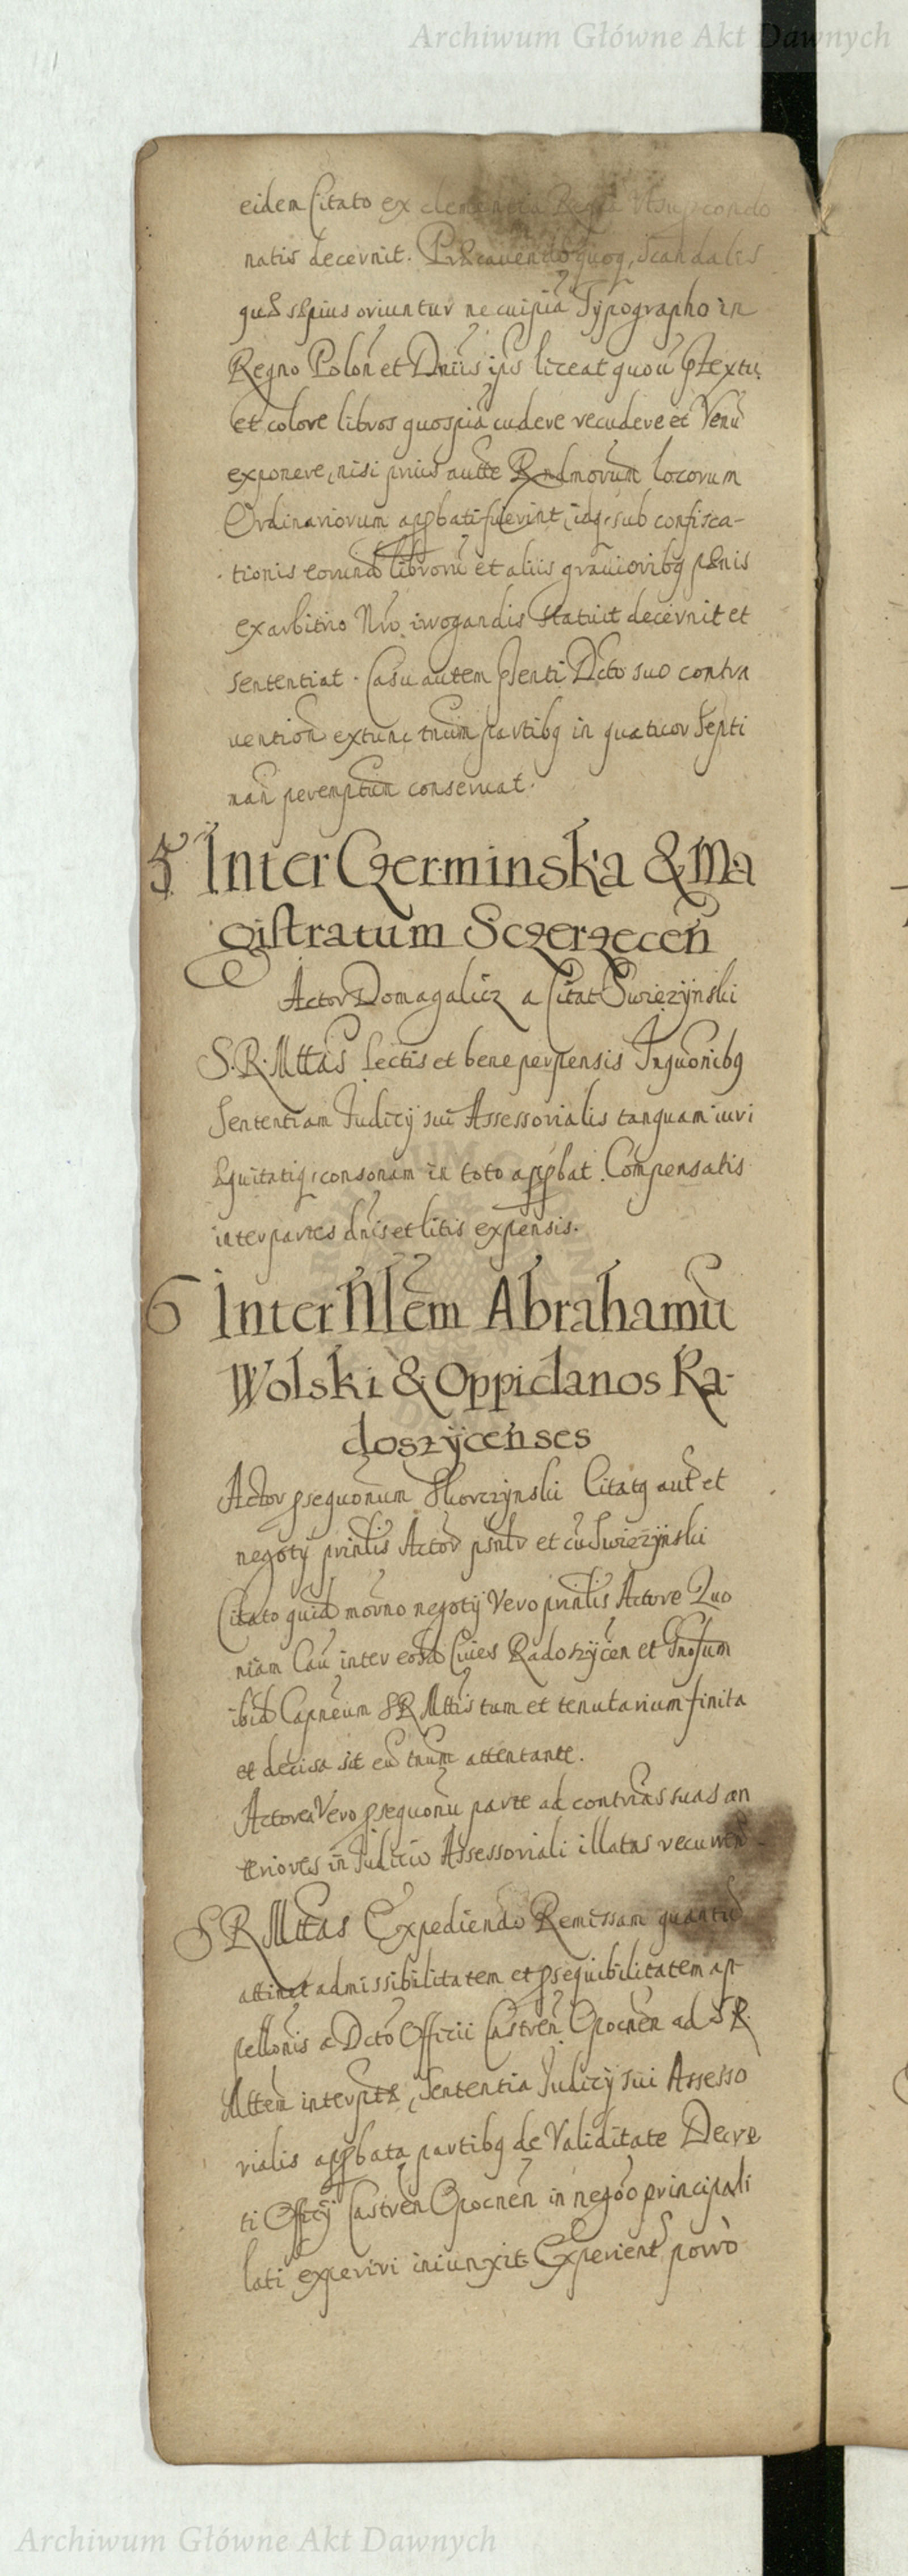 Archiwum Główne Akt Dawnych
eidem Citato ex clementia Regia condo
natis decernit. Præcavendo quoq, scandalis
quæ sæpius oriuntur ne cuipiã Typographo in
Regno Polon et Dniis ips liceat quou ptextu
et colore libros quospiã cudere recudere et Venũ
exponere, nisi prius autte Rndmorum locorum
Ordinariorum appbati fuerint, idq, sub confisca-
tionis eorund librorũ et aliis gravioribq pænis
ex arbitrio Nro irrogandis statuit decernit et
sententiat. Casu autem psenti Dcto suo contra
vention extunc tnum partibq in quatuor Septi
man peremptum conservat.
5 Inter Czerminska & Ma
gistratum Sczerzecen
Actor Domagalicz a Citat Swiezynski
S. R. Mttas Lectis et bene perpensis
Sententiam Judicÿ sui Assessorialis tanquam iuri
Æquitatiq, consonam in toto appbat. Compensatis
inter partes dnis et litis expensis.
6 Inter Mlem Abrahamũ
Wolski & Oppidanos Ra-
doszÿcenses
Actor psequonum Skorczynski Citatq aut et
negotÿ prinlis Actor et cũ Swiezÿnski
Citato negotÿ Vero prinlis Actore Quo
niam Cau inter eosd Cives Radoszÿcen et Gnosum
ibid Capneum SR Mttis tum et tenutarium finita
et decisa sit eũ tnum attentante.
Actorea Vero psequonũ parte ad contrias suas an
teriores in Judicio Assessoriali illatas recurren
S R Mttas Expediendo Remissam quantũ
attinet admissibilitatem et psequibilitatem ap
pellonis a Dcto Officii Castren Opocnen ad S R
Mttem interptæ, Sententia Judicÿ sui Assesso
rialis appbata partibq de Validitate Decre
ti Officÿ Castren Opocnen in negoo principali
lati experiri iniunxit. Experient porrò
Archiwum Główne Akt Dawnych